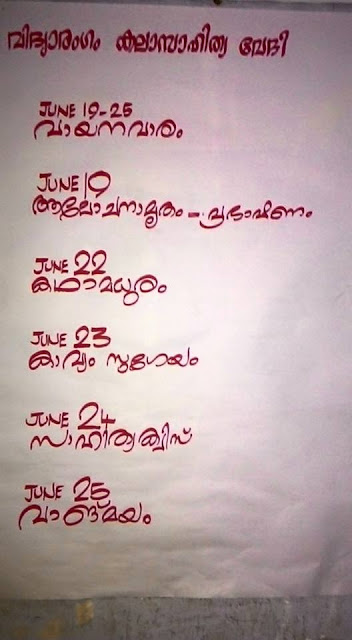 വിദ്യാരംഗം കലാസാഹിത്യ വേദി
JUNE 19-25
വായനവാരം
JUNE 19
ആലോചനാമൃതം - പ്രഭാഷണം
JUNE 22
കഥാമധുരം
JUNE 23
കാവ്യം സുഗേയം
JUNE 24
സാഹിത്യക്വിസ്
JUNE 25
വാങ്മയം